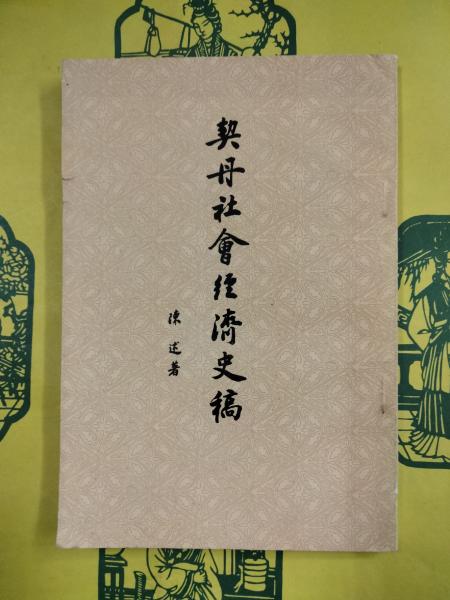 契丹社會經濟史稿
陳述著